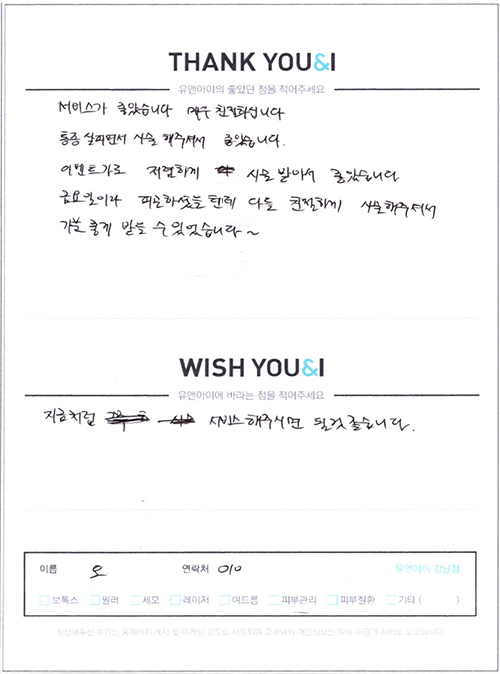 THANK YOU&I
유앤아이의 좋았던 점을 적어주세요
서비스가 좋았습니다 매우 친절하십니다
통증 살피면서 시술 해주셔서 좋았습니다.
이벤트가로 저렴하게 시술 받아서 좋았습니다
금요일이라 피곤하셨을텐데 다들 친절하게 시술해주셔서
기분 좋게 받을 수 있었습니다~
WISH YOU&I
유앤아이에 바라는 점을 적어주세요
지금처럼 서비스해주시면 될것 같습니다.
이름 오 연락처 010 유앤아이 강남점
보톡스 필러 제모 레이저 여드름 피부관리 피부질환 기타 ( )